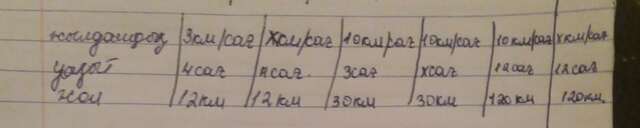 жылдамдық 3км/сағ xкм/сағ 10км/сағ 10км/сағ 10км/сағ xкм/сағ
уақыт 4сағ 4сағ 3сағ xсағ 12сағ 12сағ
жол 12км 12км 30км 30км 120км 120км